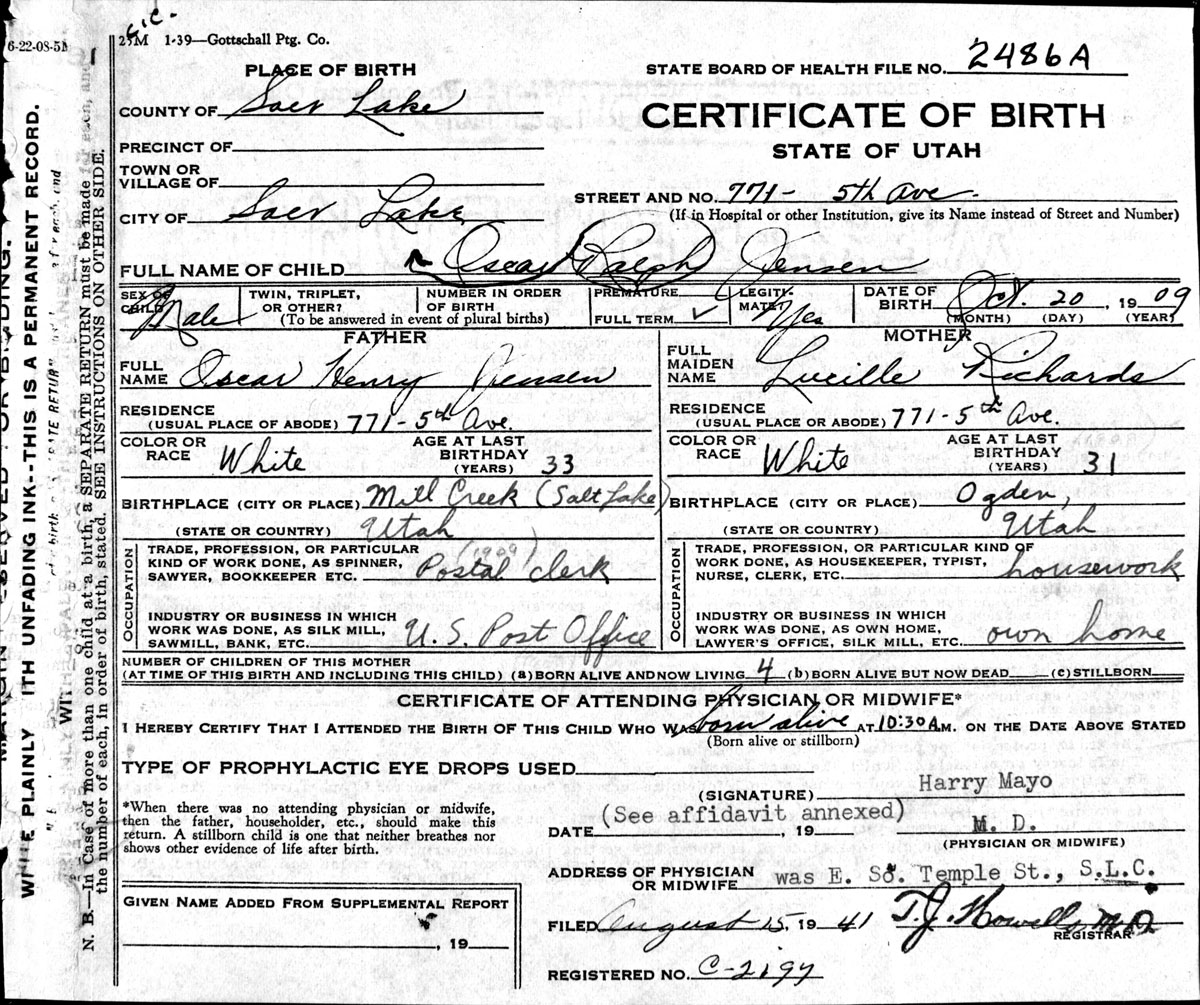 6-22-08-51
25M 1-39—Gottschall Ptg. Co.
PLACE OF BIRTH
STATE BOARD OF HEALTH FILE NO. 2486A
COUNTY OF Salt Lake
CERTIFICATE OF BIRTH
STATE OF UTAH
PRECINCT OF
TOWN OR
VILLAGE OF
CITY OF Salt Lake
STREET AND NO. 771- 5th Ave.
(If in Hospital or other Institution, give its Name instead of Street and Number)
FULL NAME OF CHILD Oscar (Ralph) Jensen
SEX OF
CHILD Male
TWIN, TRIPLET,
OR OTHER?
NUMBER IN ORDER
OF BIRTH
(To be answered in event of plural births)
PREMATURE
FULL TERM ✓
LEGITI-
MATE? Yes
DATE OF
BIRTH Oct. 20, 1909
(MONTH) (DAY) (YEAR)
FATHER
FULL
NAME Oscar Henry Jensen
RESIDENCE
(USUAL PLACE OF ABODE) 771-5th Ave.
COLOR OR
RACE White
AGE AT LAST
BIRTHDAY
(YEARS) 33
BIRTHPLACE (CITY OR PLACE) Mill Creek (Salt Lake)
(STATE OR COUNTRY) Utah
OCCUPATION
TRADE, PROFESSION, OR PARTICULAR
KIND OF WORK DONE, AS SPINNER,
SAWYER, BOOKKEEPER ETC. (1909) Postal clerk
INDUSTRY OR BUSINESS IN WHICH
WORK WAS DONE, AS SILK MILL,
SAWMILL, BANK, ETC. U.S. Post Office
MOTHER
FULL
MAIDEN
NAME Lucille Richards
RESIDENCE
(USUAL PLACE OR ABODE) 771-5th Ave.
COLOR OR
RACE White
AGE AT LAST
BIRTHDAY
(YEARS) 31
BIRTHPLACE (CITY OR PLACE) Ogden,
(STATE OR COUNTRY) Utah
OCCUPATION
TRADE, PROFESSION, OR PARTICULAR KIND OF
WORK DONE, AS HOUSEKEEPER, TYPIST,
NURSE, CLERK, ETC. housework
INDUSTRY OR BUSINESS IN WHICH
WORK WAS DONE, AS OWN HOME,
LAWYER'S OFFICE, SILK MILL, ETC. own home
NUMBER OF CHILDREN OF THIS MOTHER
(AT TIME OF THIS BIRTH AND INCLUDING THIS CHILD) (a) BORN ALIVE AND NOW LIVING 4 (b) BORN ALIVE BUT NOW DEAD (c) STILLBORN
CERTIFICATE OF ATTENDING PHYSICIAN OR MIDWIFE*
I HEREBY CERTIFY THAT I ATTENDED THE BIRTH OF THIS CHILD WHO WAS born alive AT 10:30 A M. ON THE DATE ABOVE STATED
(Born alive or stillborn)
TYPE OF PROPHYLACTIC EYE DROPS USED
*When there was no attending physician or midwife,
then the father, householder, etc., should make this
return. A stillborn child is one that neither breathes nor
shows other evidence of life after birth.
(SIGNATURE) Harry Mayo
(See affidavit annexed)
DATE , 19 M. D.
(PHYSICIAN OR MIDWIFE)
ADDRESS OF PHYSICIAN
OR MIDWIFE was E. So. Temple St., S.L.C.
GIVEN NAME ADDED FROM SUPPLEMENTAL REPORT
, 19
FILED August 15, 1941 T.J. Howells, M.D.
REGISTRAR
REGISTERED NO. C-2197
WRITE PLAINLY WITH UNFADING INK--THIS IS A PERMANENT RECORD.
N. B.—In Case of more than one child at a birth, a SEPARATE RETURN must be made for each, and
the number of each, in order of birth, stated. SEE INSTRUCTIONS ON OTHER SIDE.